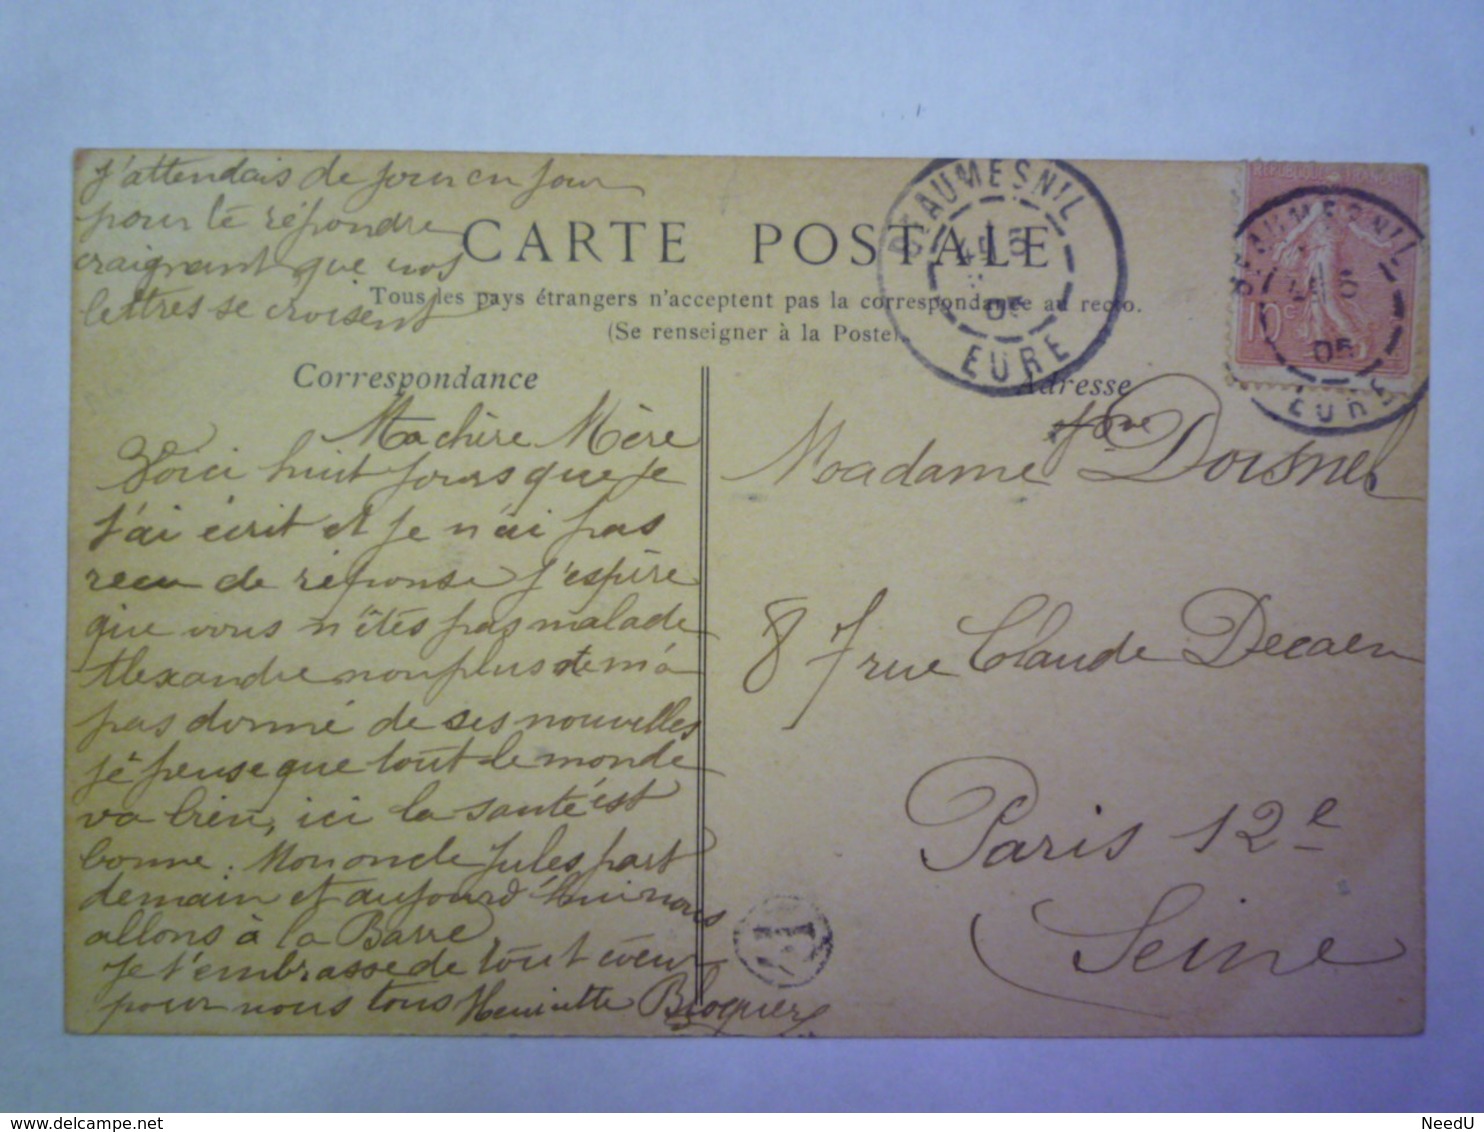 J'attendais de jour en jour
pour te répondre
craignant que nos
lettres se croisent
CARTE POSTALE
Tous les pays étrangers n'acceptent pas la correspondance au recto.
(Se renseigner à la Poste)
Correspondance
Adresse
BEAUMESNIL
05
EURE
REPUBLIQUE FRANÇAISE
10c
BEAUMESNIL
05
EURE
Ma chère Mère
Voici huit jours que je
t'ai écrit et je n'ai pas
recu de réponse j'espère
que vous n'êtes pas malade
Alexandre non plus ne m'a
pas donné de ses nouvelles
je pense que tout le monde
va bien, ici la santé est
bonne. Mon oncle Jules part
demain et aujourd'hui nous
allons à la Barre
Je t'embrasse de tout cœur
pour nous tous Henriette Broquier
Madame Doisnel
8 rue Claude Decaen
Paris 12e
Seine
NeedU
www.delcampe.net
NeedU